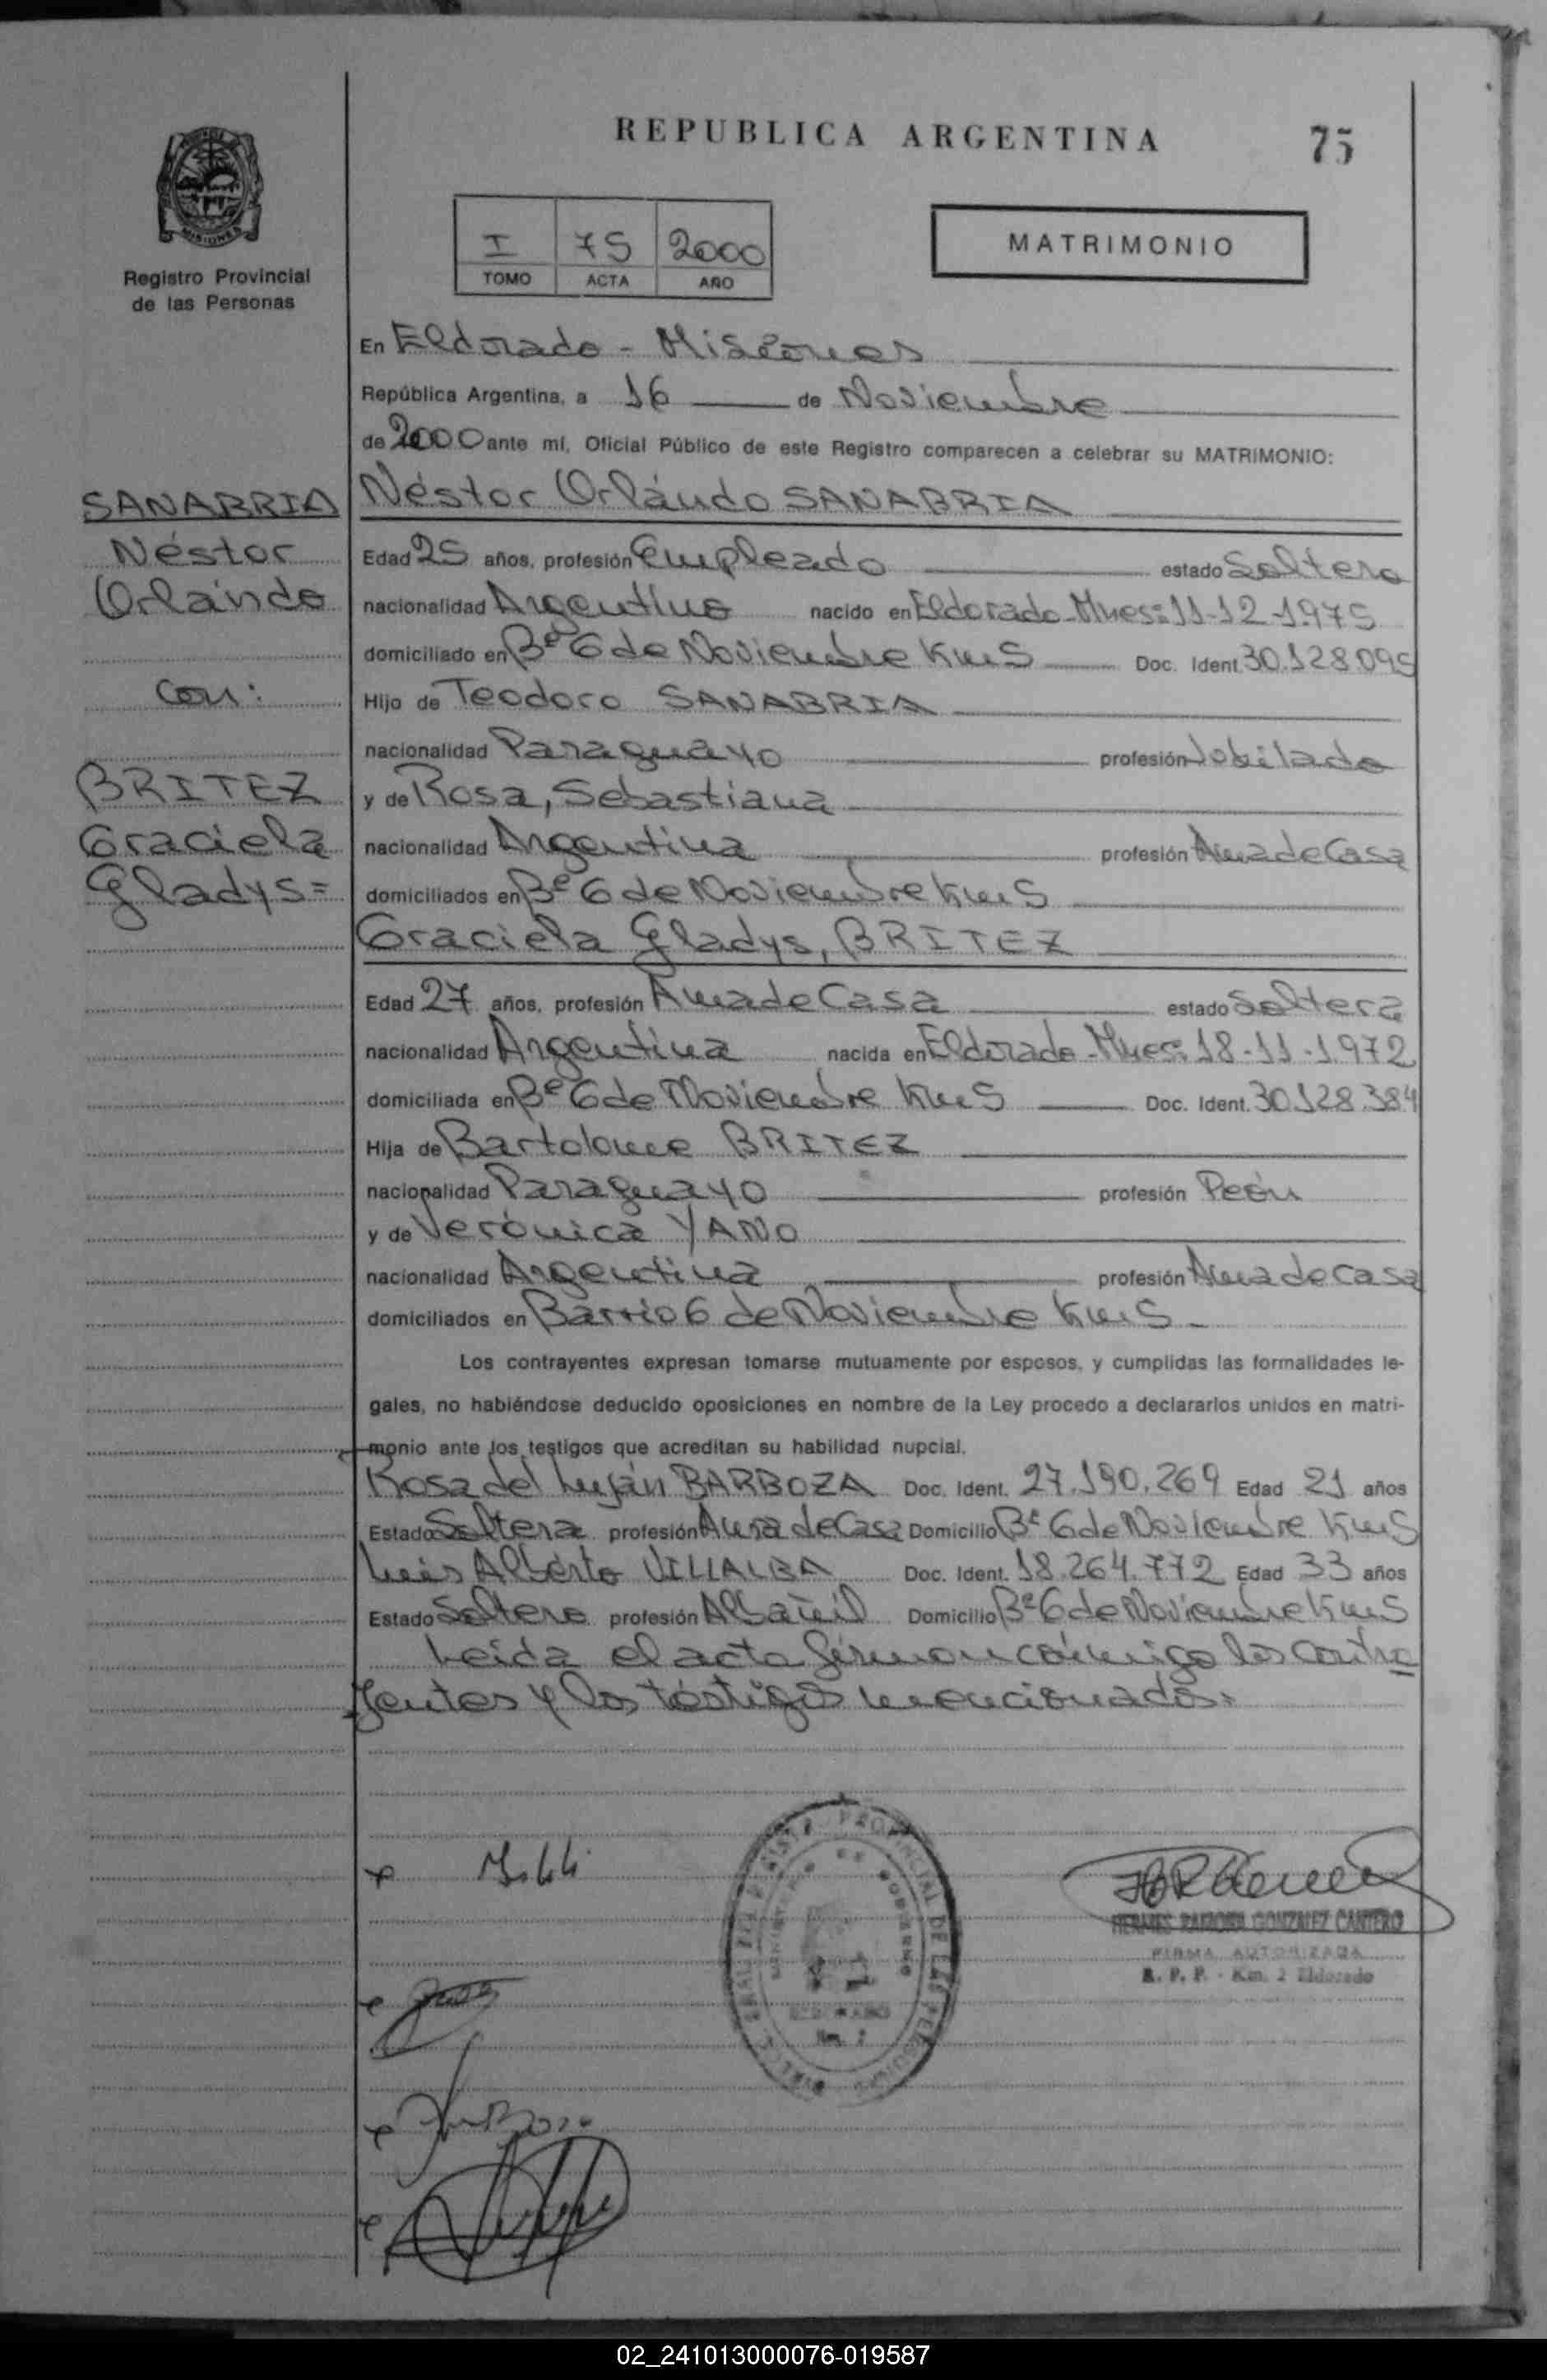 REPUBLICA ARGENTINA
75
MISIONES
Registro Provincial
de las Personas
I 75 2000
TOMO ACTA AÑO
MATRIMONIO
En Eldorado - Misiones
República Argentina, a 16 de Noviembre
de 2000 ante mí, Oficial Público de este Registro comparecen a celebrar su MATRIMONIO:
SANABRIA
Néstor
Orlándo
con:
BRITEZ
Graciela
Gladys=
Néstor Orlándo SANABRIA
Edad 25 años, profesión Empleado estado Soltero
nacionalidad Argentino nacido en Eldorado-Mnes: 11-12-1.975
domiciliado en Bº 6 de Noviembre Km 5 Doc. Ident. 30.128.095
Hijo de Teodoro SANABRIA
nacionalidad Paraguayo profesión Jobilado
y de Rosa, Sebastiana
nacionalidad Argentina profesión Ama de Casa
domiciliados en Bº 6 de Noviembre Km 5
Graciela Gladys, BRITEZ
Edad 27 años, profesión Ama de Casa estado Soltera
nacionalidad Argentina nacida en Eldorado-Mnes: 18-11-1.972
domiciliada en Bº 6 de Noviembre Km 5 Doc. Ident. 30.128.384
Hija de Bartolome BRITEZ
nacionalidad Paraguayo profesión Peón
y de Verónica YANO
nacionalidad Argentina profesión Ama de casa
domiciliados en Barrio 6 de Noviembre Km 5-
Los contrayentes expresan tomarse mutuamente por esposos, y cumplidas las formalidades le-
gales, no habiéndose deducido oposiciones en nombre de la Ley procedo a declararlos unidos en matri-
monio ante los testigos que acreditan su habilidad nupcial.
Rosa del Luján BARBOZA Doc. Ident. 27.190.269 Edad 21 años
Estado Soltera profesión Ama de Casa Domicilio Bº 6 de Noviembre Km 5
Luis Alberto VILLALBA Doc. Ident. 18.264.772 Edad 33 años
Estado Soltero profesión Albañil Domicilio Bº 6 de Noviembre Km 5
Leida el acta firman cónmigo los contra
yentes y los téstigos mencionados=
REGISTRO PROVINCIAL DE LAS PERSONAS
ELDORADO
Km. 2
HERMES RAMONA GONZALEZ CANTERO
FIRMA AUTORIZADA
R. P. P. - Km. 2 Eldorado
02_241013000076-019587